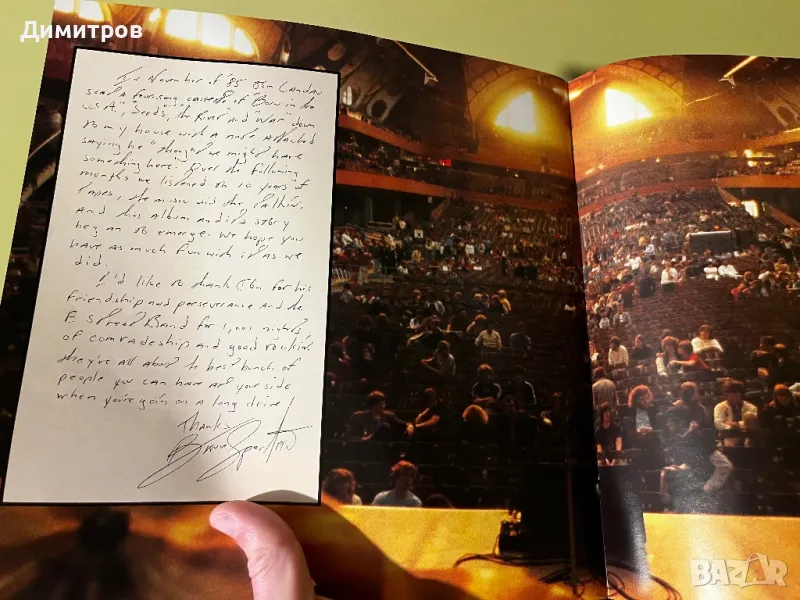 Димитров
In November of '85 Jon Landau
sent a four song cassette of "Born in the
U.S.A", "Seeds", "the River" and "War" down
to my house with a note attached
saying he "thought we might have
something here". Over the following
months we listened to 10 years of
Tapes, the music did the talkin',
and this album and it's story
began to emerge. We hope you
have as much fun with it as we
did.
I'd like to thank Jon for his
friendship and perseverance and the
E Street Band for 1,001 nights
of comradeship and good rockin'.
they're all about the best bunch of
people you can have at your side
when you're goin' on a long drive!
Thanks
Bruce Springsteen
BAZAR